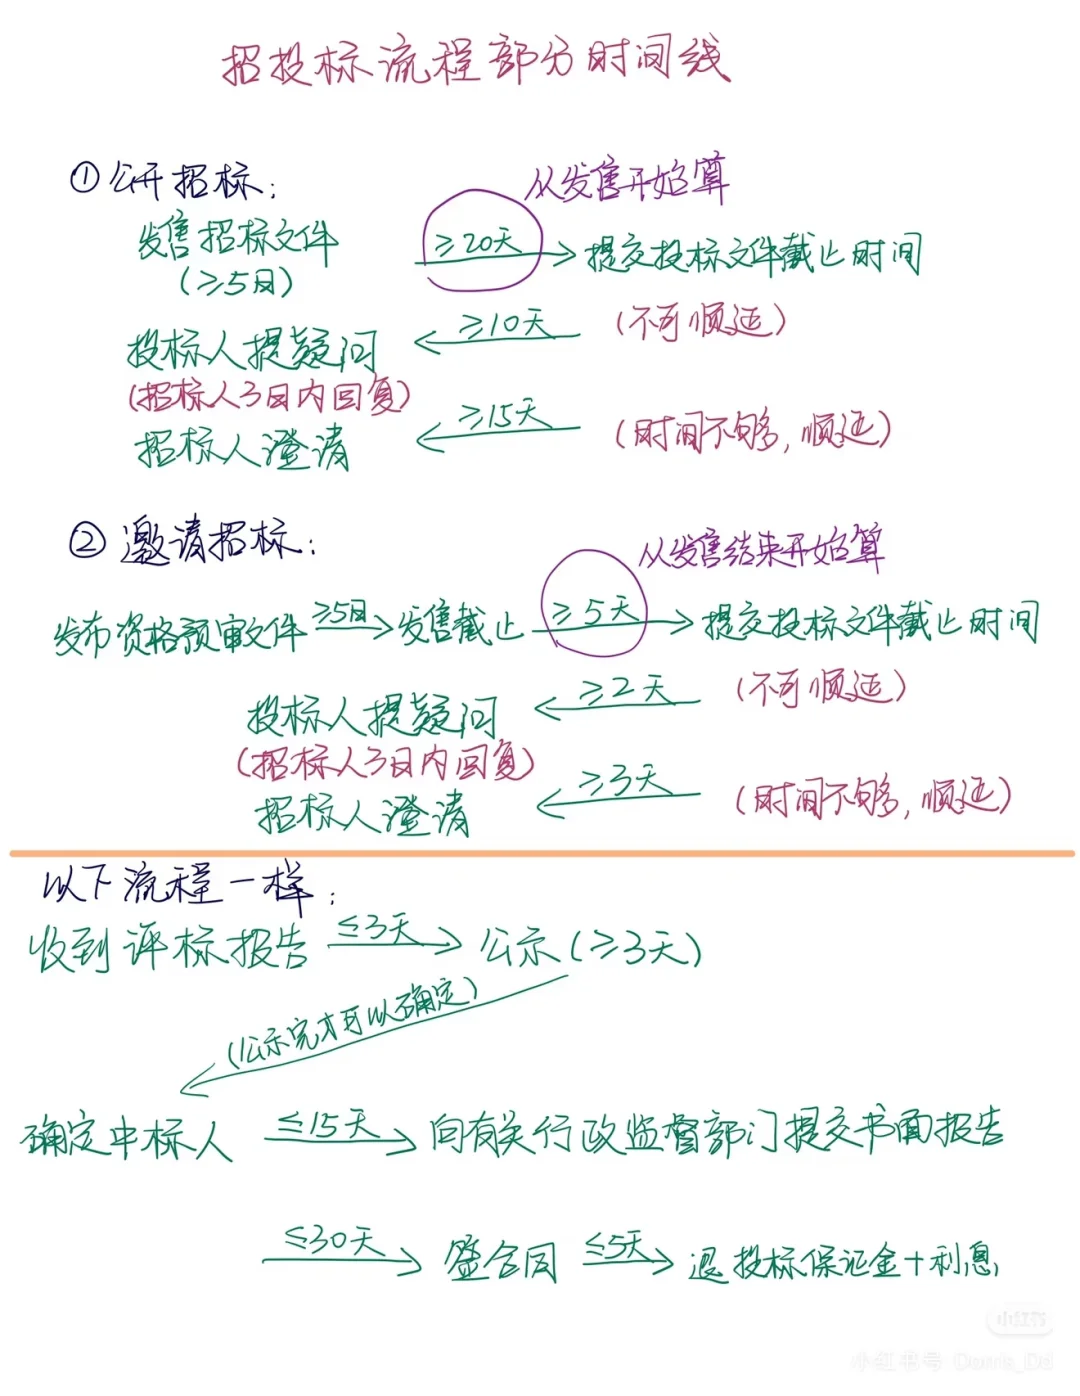 招投标流程部分时间线
①公开招标：
从发售开始算
发售招标文件 ≥20天 提交投标文件截止时间
(≥5日)
投标人提疑问 ≥10天 (不可顺延)
(招标人3日内回复)
招标人澄清 ≥15天 (时间不够, 顺延)
②邀请招标：
从发售结束开始算
发布资格预审文件 ≥5日 发售截止 ≥5天 提交投标文件截止时间
投标人提疑问 ≥2天 (不可顺延)
(招标人3日内回复)
招标人澄清 ≥3天 (时间不够, 顺延)
以下流程一样：
收到评标报告 ≤3天 公示(≥3天)
(公示完才可以确定)
确定中标人 ≤15天 向有关行政监督部门提交书面报告
≤30天 签合同 ≤5天 退投标保证金+利息
小红书
小红书号 Dorris_Dd